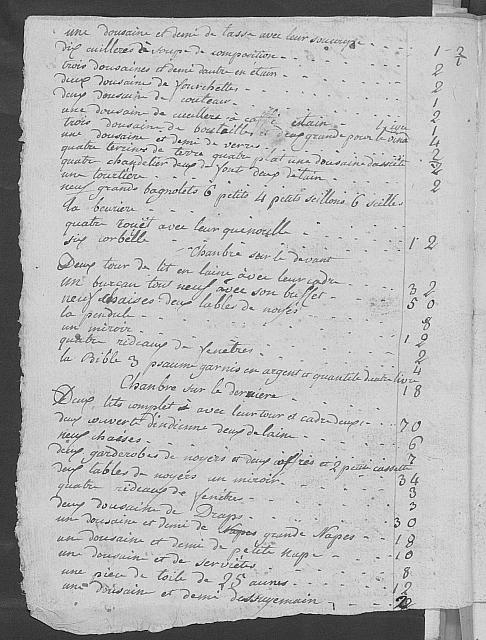 une dousaine et demi de tasse avec leur soucoupe
dix cuilleres à soupe de composition - 1 2/1
trois dousaines et demi dautre en etain - 2
deux dousaine de fourchettes - 2
deux dousaine de couteaux - 1
une dousain de cueillere à caffé etain - 2
trois dousaine de bouteilles et deux grande pour le vina 1
une dousaine et demi de verres - 4
quatre terrines de terre quatre plat une dousaine dassiete 2
quatre chandelier deux de fonte deux detain - 2
une tourtiere - 2
neuf grands bagnolets 6 petits 4 petit seillons 6 seilles
la beuriere
quatre rouet avec leur quenouille
six corbelle - 1 2
Chanbre sur le devant
Deux tour de lit en laine avec leur cadre
un bureau tout neuf avec son buffet - 3 2
neuf chaises deux tables de noyer - 5 0
la pendule
un miroir - 8
quatre rideaux de fenêtres - 1 2
la Bible 3 psaume garnis en argent et quantité dautre livre 4
Chanbre sur le derriere - 1 8
Deux lits complet avec leur tour et cadre deux
deux couverte d'indienne deux de laine - 7 0
neuf chasses - 6
deux garderobes de noyers et deux coffres et 2 petit cassette 7
deux tables de noyers un miroir - 3 4
quatre rideaux de fenêtre - 3
deux dousaine de Draps - 3
un dousaine et demi de Napes grande Napes - 3 0
un dousaine et demi de petite nap - 1 8
un dousaine et de serviettes - 1 0
une piece de toile de 25 aunes - 8
une dousain et demi dessuyemain - 1 2